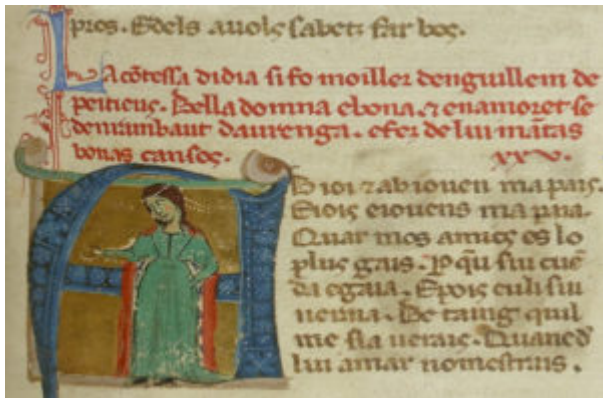 pros. Edels auols sabetz far bos.
La cōtessa didia si fo moiller denguillem de
peitieus. Bella domna e bona. ⁊ enamoret se
den rambaut daurenga. e fez de lui mātas
bonas cansos. xxv.
Ab ioi ⁊ ab iouen ma pais.
E iois e iouens ma paia.
Quar mos amics es lo
plus gais. ꝑ qu siu
da egaia. E pois eu li siu
ueraia. Be taing quil
me sia uerais. Quanc d
lui amar nomestrais.